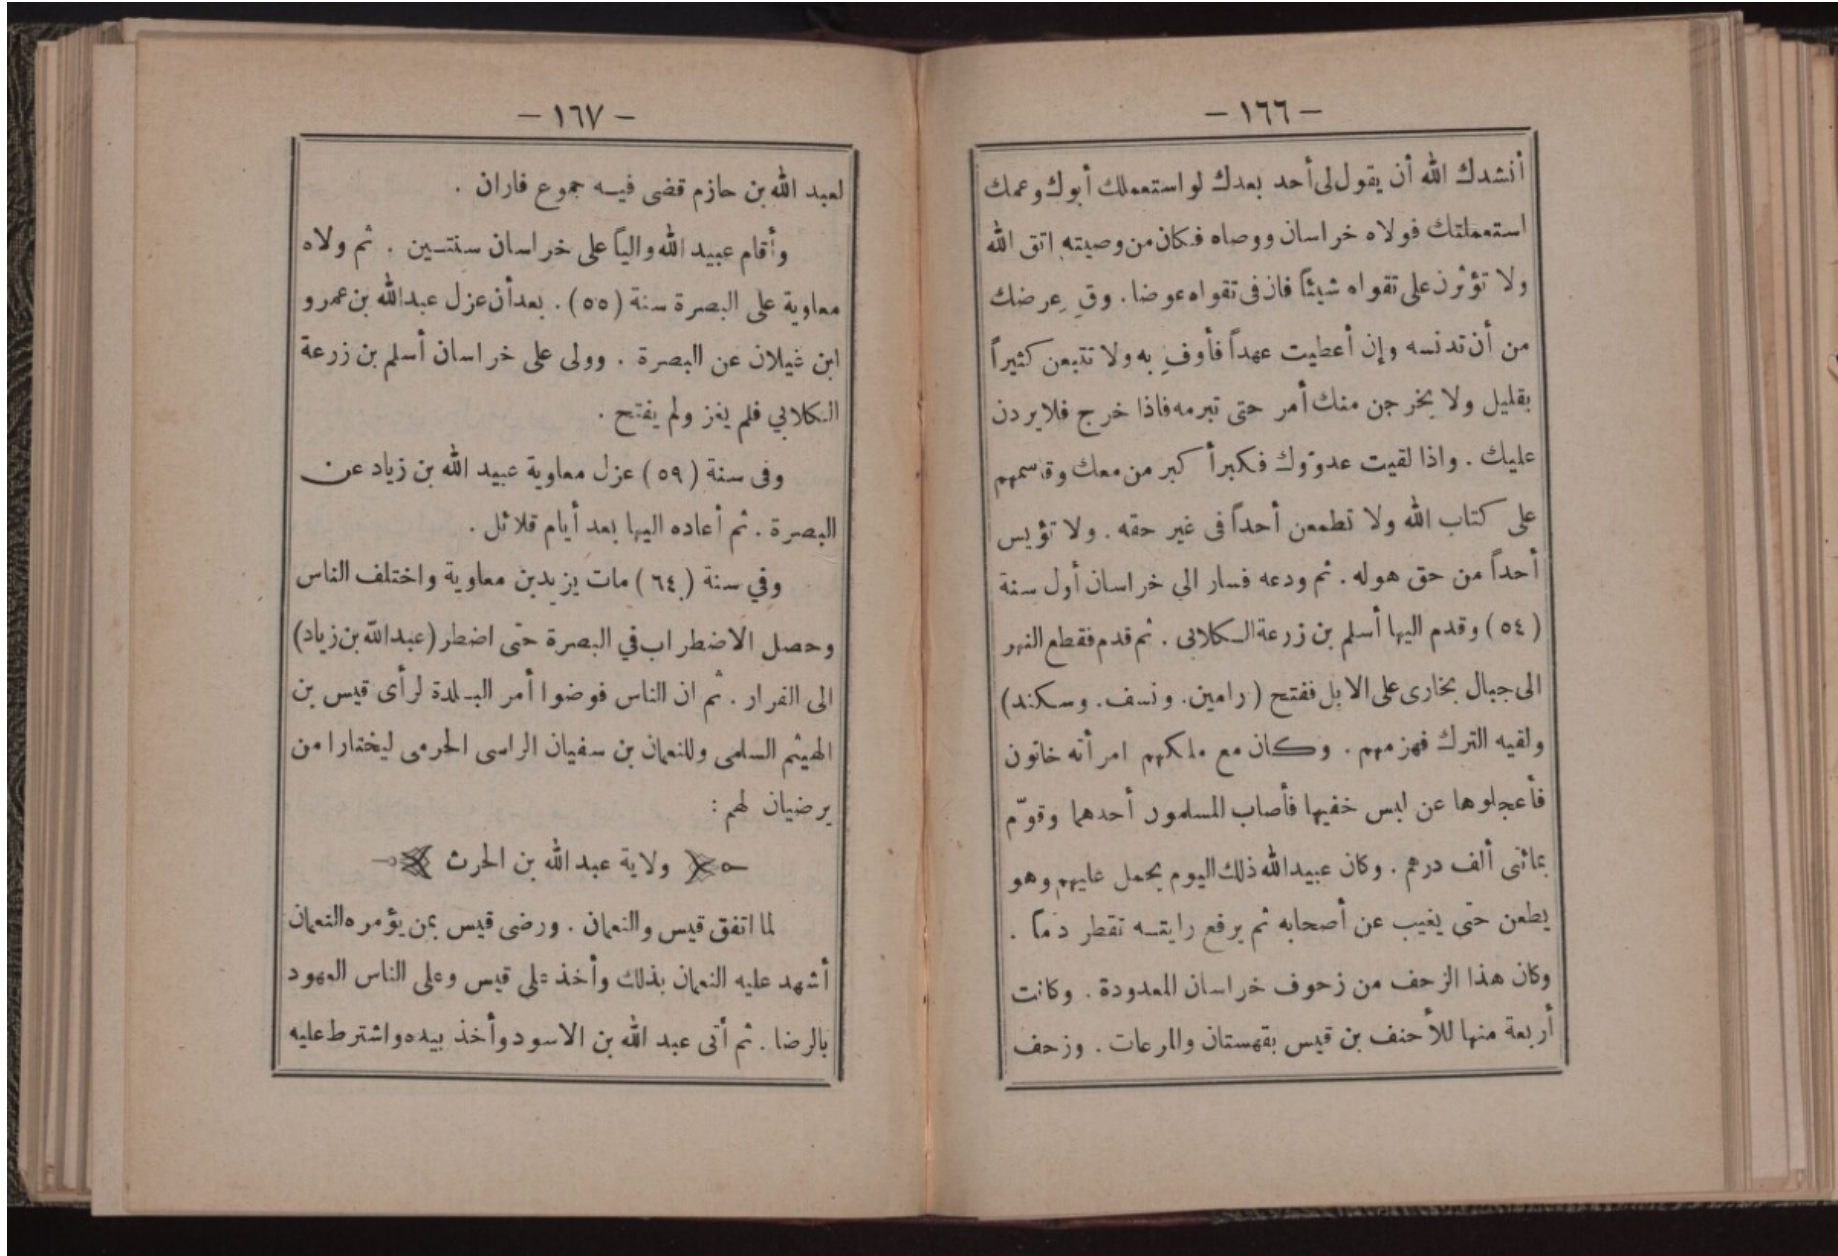 — ١٦٦ —
أنشدك الله أن يقول لى أحد بعدك لو استعملك أبوك وعمك
استعملتك فولاه خراسان ووصاه فكان من وصيته اتق الله
ولا تؤثرن على تقواه شيئاً فان فى تقواه عوضا. وقِ عِرضك
من أن تدنسه وإن أعطيت عهداً فأوفِ به ولا تتبعن كثيراً
بقليل ولا يخرجن منك أمر حتى تبرمه فاذا خرج فلا يردن
عليك . واذا لقيت عدوّك فكبر أكبر من معك وقاسمهم
على كتاب الله ولا تطمعن أحداً فى غير حقه . ولا تؤيس
أحداً من حق هوله . ثم ودعه فسار الي خراسان أول سنة
(٥٤) وقدم اليها أسلم بن زرعة الكلابى . ثم قدم فقطع النهر
الى جبال بخارى على الابل ففتح (رامين. ونسف. وسكند)
ولقيه الترك فهزمهم . وكان مع ملكهم امرأته خاتون
فأعجلوها عن لبس خفيها فأصاب المسلمون أحدهما وقوّم
بمائتى ألف درهم . وكان عبيد الله ذلك اليوم يحمل عليهم وهو
يطعن حتى يغيب عن أصحابه ثم يرفع رايته تقطر دماً .
وكان هذا الزحف من زحوف خراسان المعدودة . وكانت
أربعة منها للأحنف بن قيس بقهستان والمرعات . وزحف
— ١٦٧ —
لعبد الله بن حازم قضى فيه جموع فاران .
وأقام عبيد الله والياً على خراسان سنتين . ثم ولاه
معاوية على البصرة سنة (٥٥) . بعد أن عزل عبد الله بن عمرو
ابن غيلان عن البصرة . وولى على خراسان أسلم بن زرعة
الكلابي فلم يغز ولم يفتح .
وفى سنة (٥٩) عزل معاوية عبيد الله بن زياد عن
البصرة . ثم أعاده اليها بعد أيام قلائل .
وفي سنة (٦٤) مات يزيد بن معاوية واختلف الناس
وحصل الاضطراب في البصرة حتى اضطر (عبد الله بن زياد)
الى الفرار . ثم ان الناس فوضوا أمر البلدة لرأى قيس بن
الهيثم السلمى وللنعمان بن سفيان الراسى الحرمى ليختارا من
يرضيان لهم :
ولاية عبد الله بن الحرث
لما اتفق قيس والنعمان . ورضى قيس بمن يؤمره النعمان
أشهد عليه النعمان بذلك وأخذ على قيس وعلى الناس العهود
بالرضا . ثم أتى عبد الله بن الاسود وأخذ بيده واشترط عليه